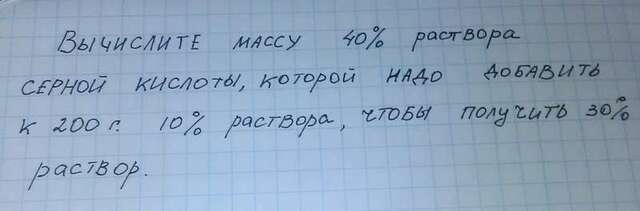 Вычислите массу 40% раствора
серной кислоты, которой надо добавить
к 200 г. 10% раствора, чтобы получить 30%
раствор.